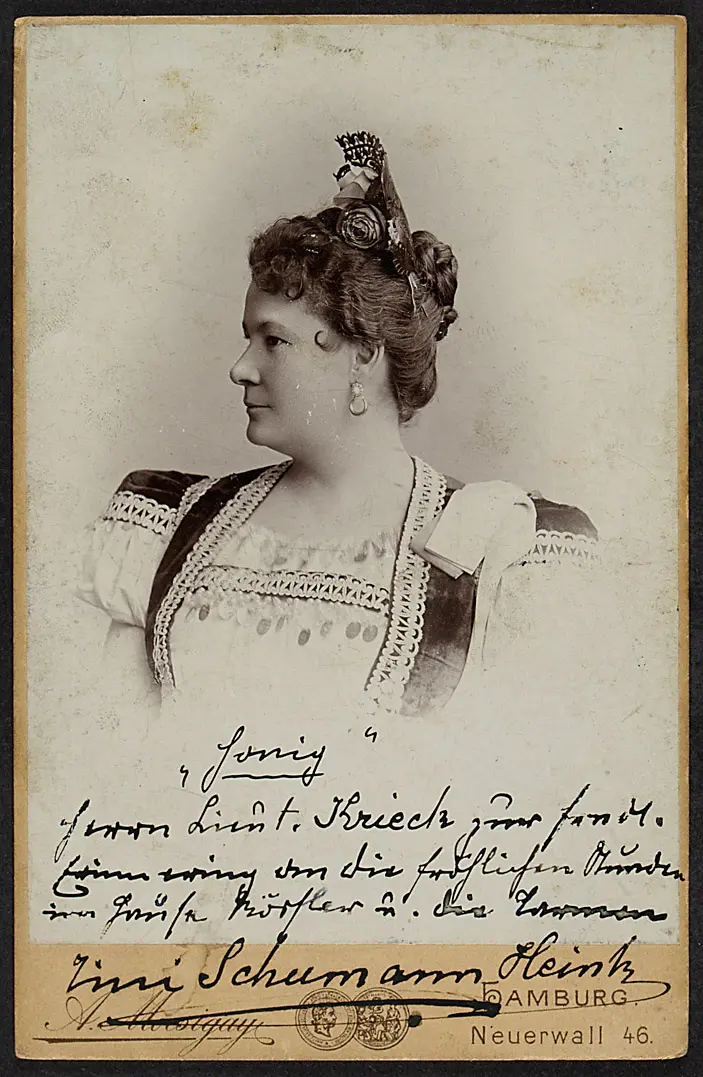 „Honig“
Herrn Lieut. Krieck zur frndl.
Erinnerung an die fröhlichen Stunden
im Hause Kössler u. die Carmen
Tini Schumann Heink
HAMBURG.
Neuerwall 46.